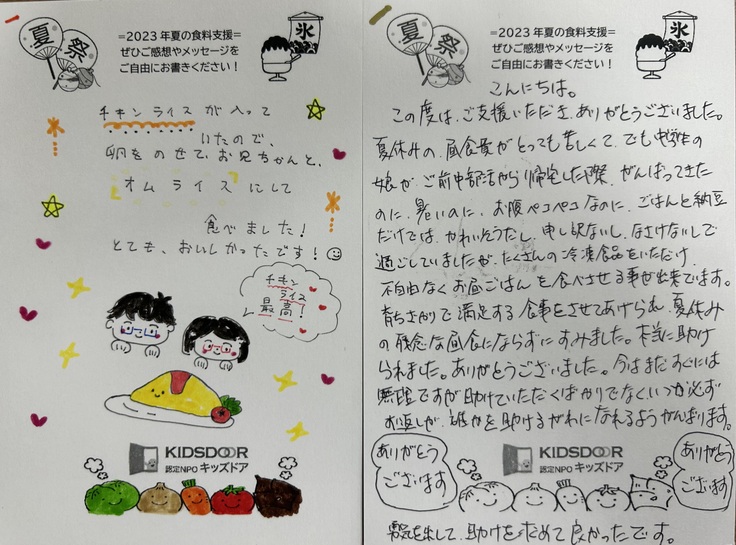 夏祭
=2023年夏の食料支援=
ぜひご感想やメッセージを
ご自由にお書きください！
氷
チキンライスが入って
いたので、
卵をのせて、お兄ちゃんと、
オムライスにして
食べました！
とても、おいしかったです！
チキン
ライス
最高！
KIDSDOOR
認定NPO キッズドア
夏祭
=2023年夏の食料支援=
ぜひご感想やメッセージを
ご自由にお書きください！
氷
こんにちは。
この度は、ご支援いただき、ありがとうございました。
夏休みの、昼食費がとっても苦しくて、でも中学生の
娘が、ご前中部活から帰宅した際、がんばってきた
のに、暑いのに、お腹ペコペコなのに、ごはんと納豆
だけでは、かわいそうだし、申し訳ないし、なさけないしで
過ごしていましたが、たくさんの冷凍食品をいただけ、
不自由なくお昼ごはんを食べさせる事が出来でいます。
育ちざかりで満足する食事をさせてあげられ、夏休み
の残念な昼食にならずにすみました。本当に助け
られました。ありがとうございました。今はまだすぐには
無理ですが助けていただくばかりでなくいつか必ず
お返しが、誰かを助けるがわになれるようがんばります。
ありがとう
ございます
KIDSDOOR
認定NPO キッズドア
ありがとう
ございます
勇気を出して、助けを求めて良かったです。